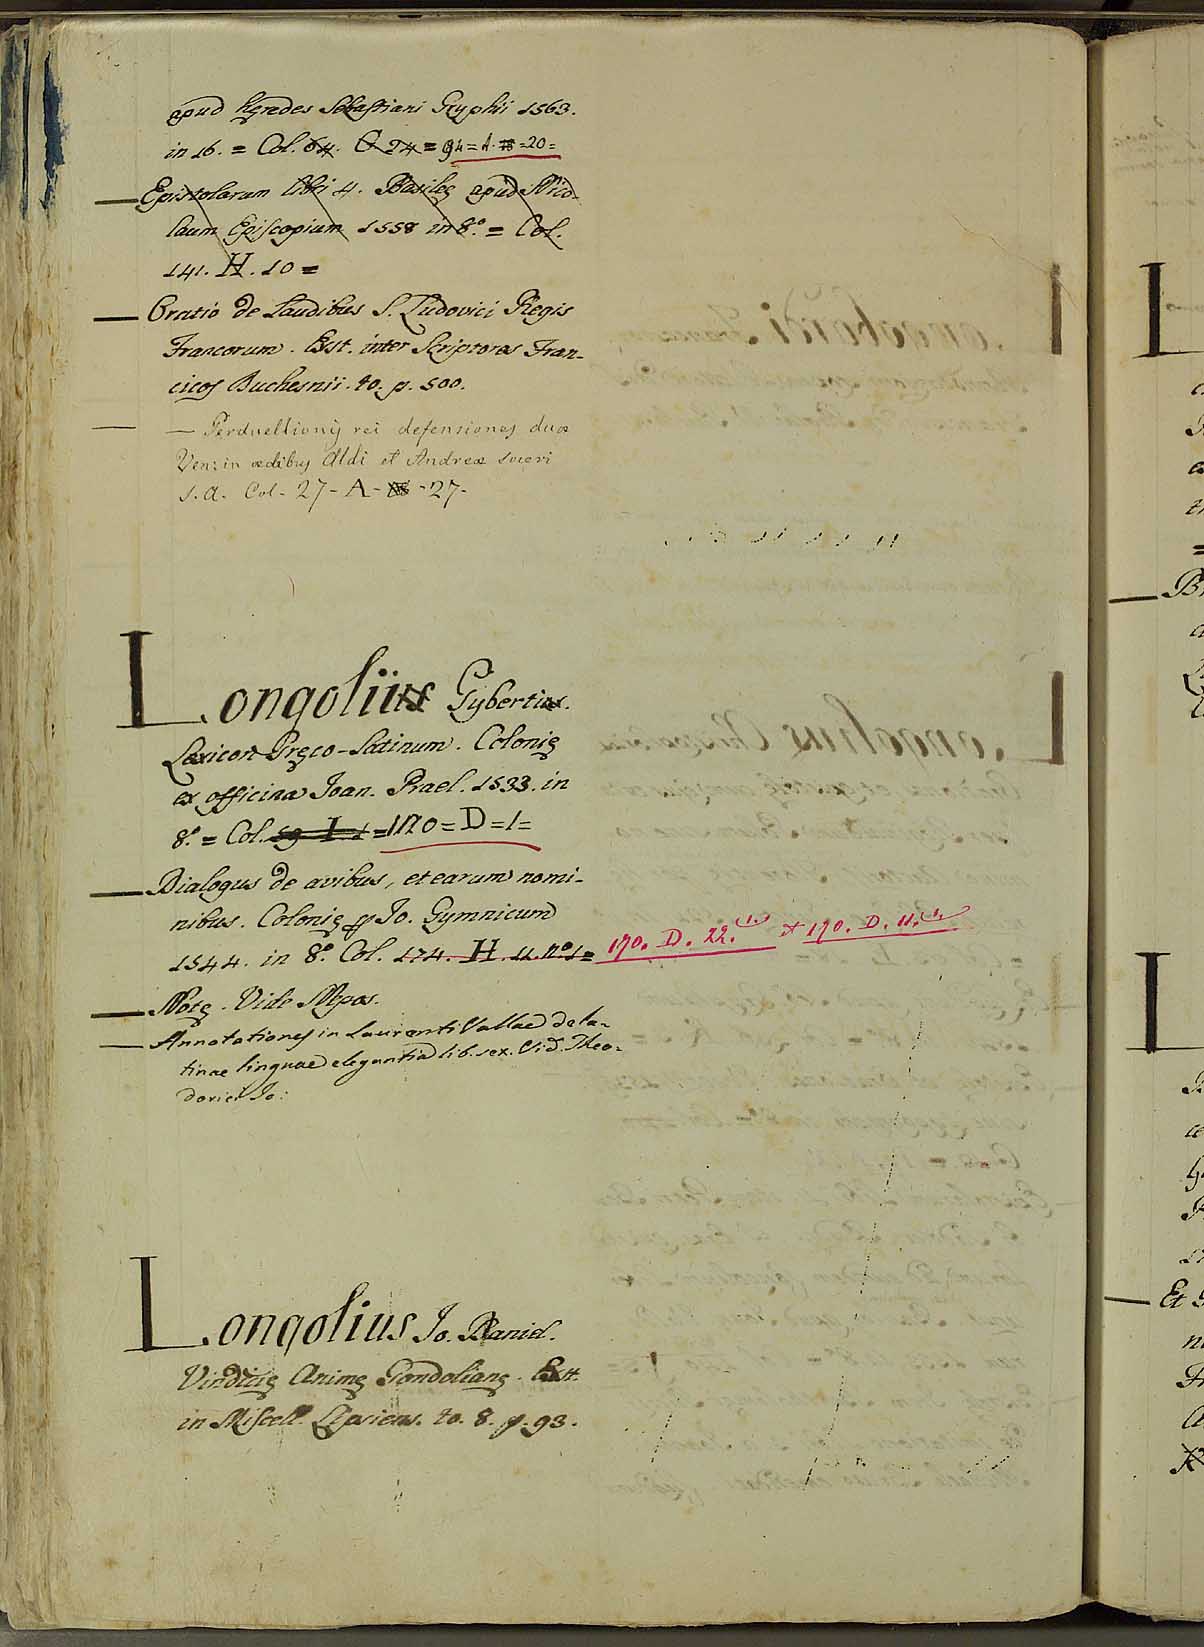 apud hęredes Sebastiani Gryphii 1563.
in 16. = Col. 64. C 24 = 94 = A = 20 =
— Epistolarum libri 4. Basileę apud Nico-
laum Episcopium 1558 in 8.º = Col.
141. H. 10 =
— Oratio de Laudibus S. Ludovici Regis
Francorum. Exst. inter Scriptores Fran-
cicos Duchesnii. to. p. 500.
— — Perduellionis rei defensiones duæ
Ven: in ædibus Aldi et Andreæ soceri
s. a. Col - 27 - A - 27 -
Longolii Gyberti.
Lexicon Gręco-Latinum. Colonię
ex officina Joan. Prael. 1533. in
8.º = Col. 59 I. 1 = 170 = D = 1 =
— Dialogus de avibus, et earum nomi-
nibus. Colonię Jo. Gymnicum
1544. in 8.º Col. 174. H. 11. nº 1 = 170. D. 22. (1.) et 170. D. 11. (1.)
— Notę. Vide Nepos.
— Annotationes in Laurenti Vallae de la-
tinae linguae elegantia lib. sex. Vid. Theo-
dorici Jo:
Longolius Jo. Daniel.
Vindicię Animę Gondolianę. Exst.
in Miscell. Lipsiens. to. 8. p. 93.
L
Br
L
— Et